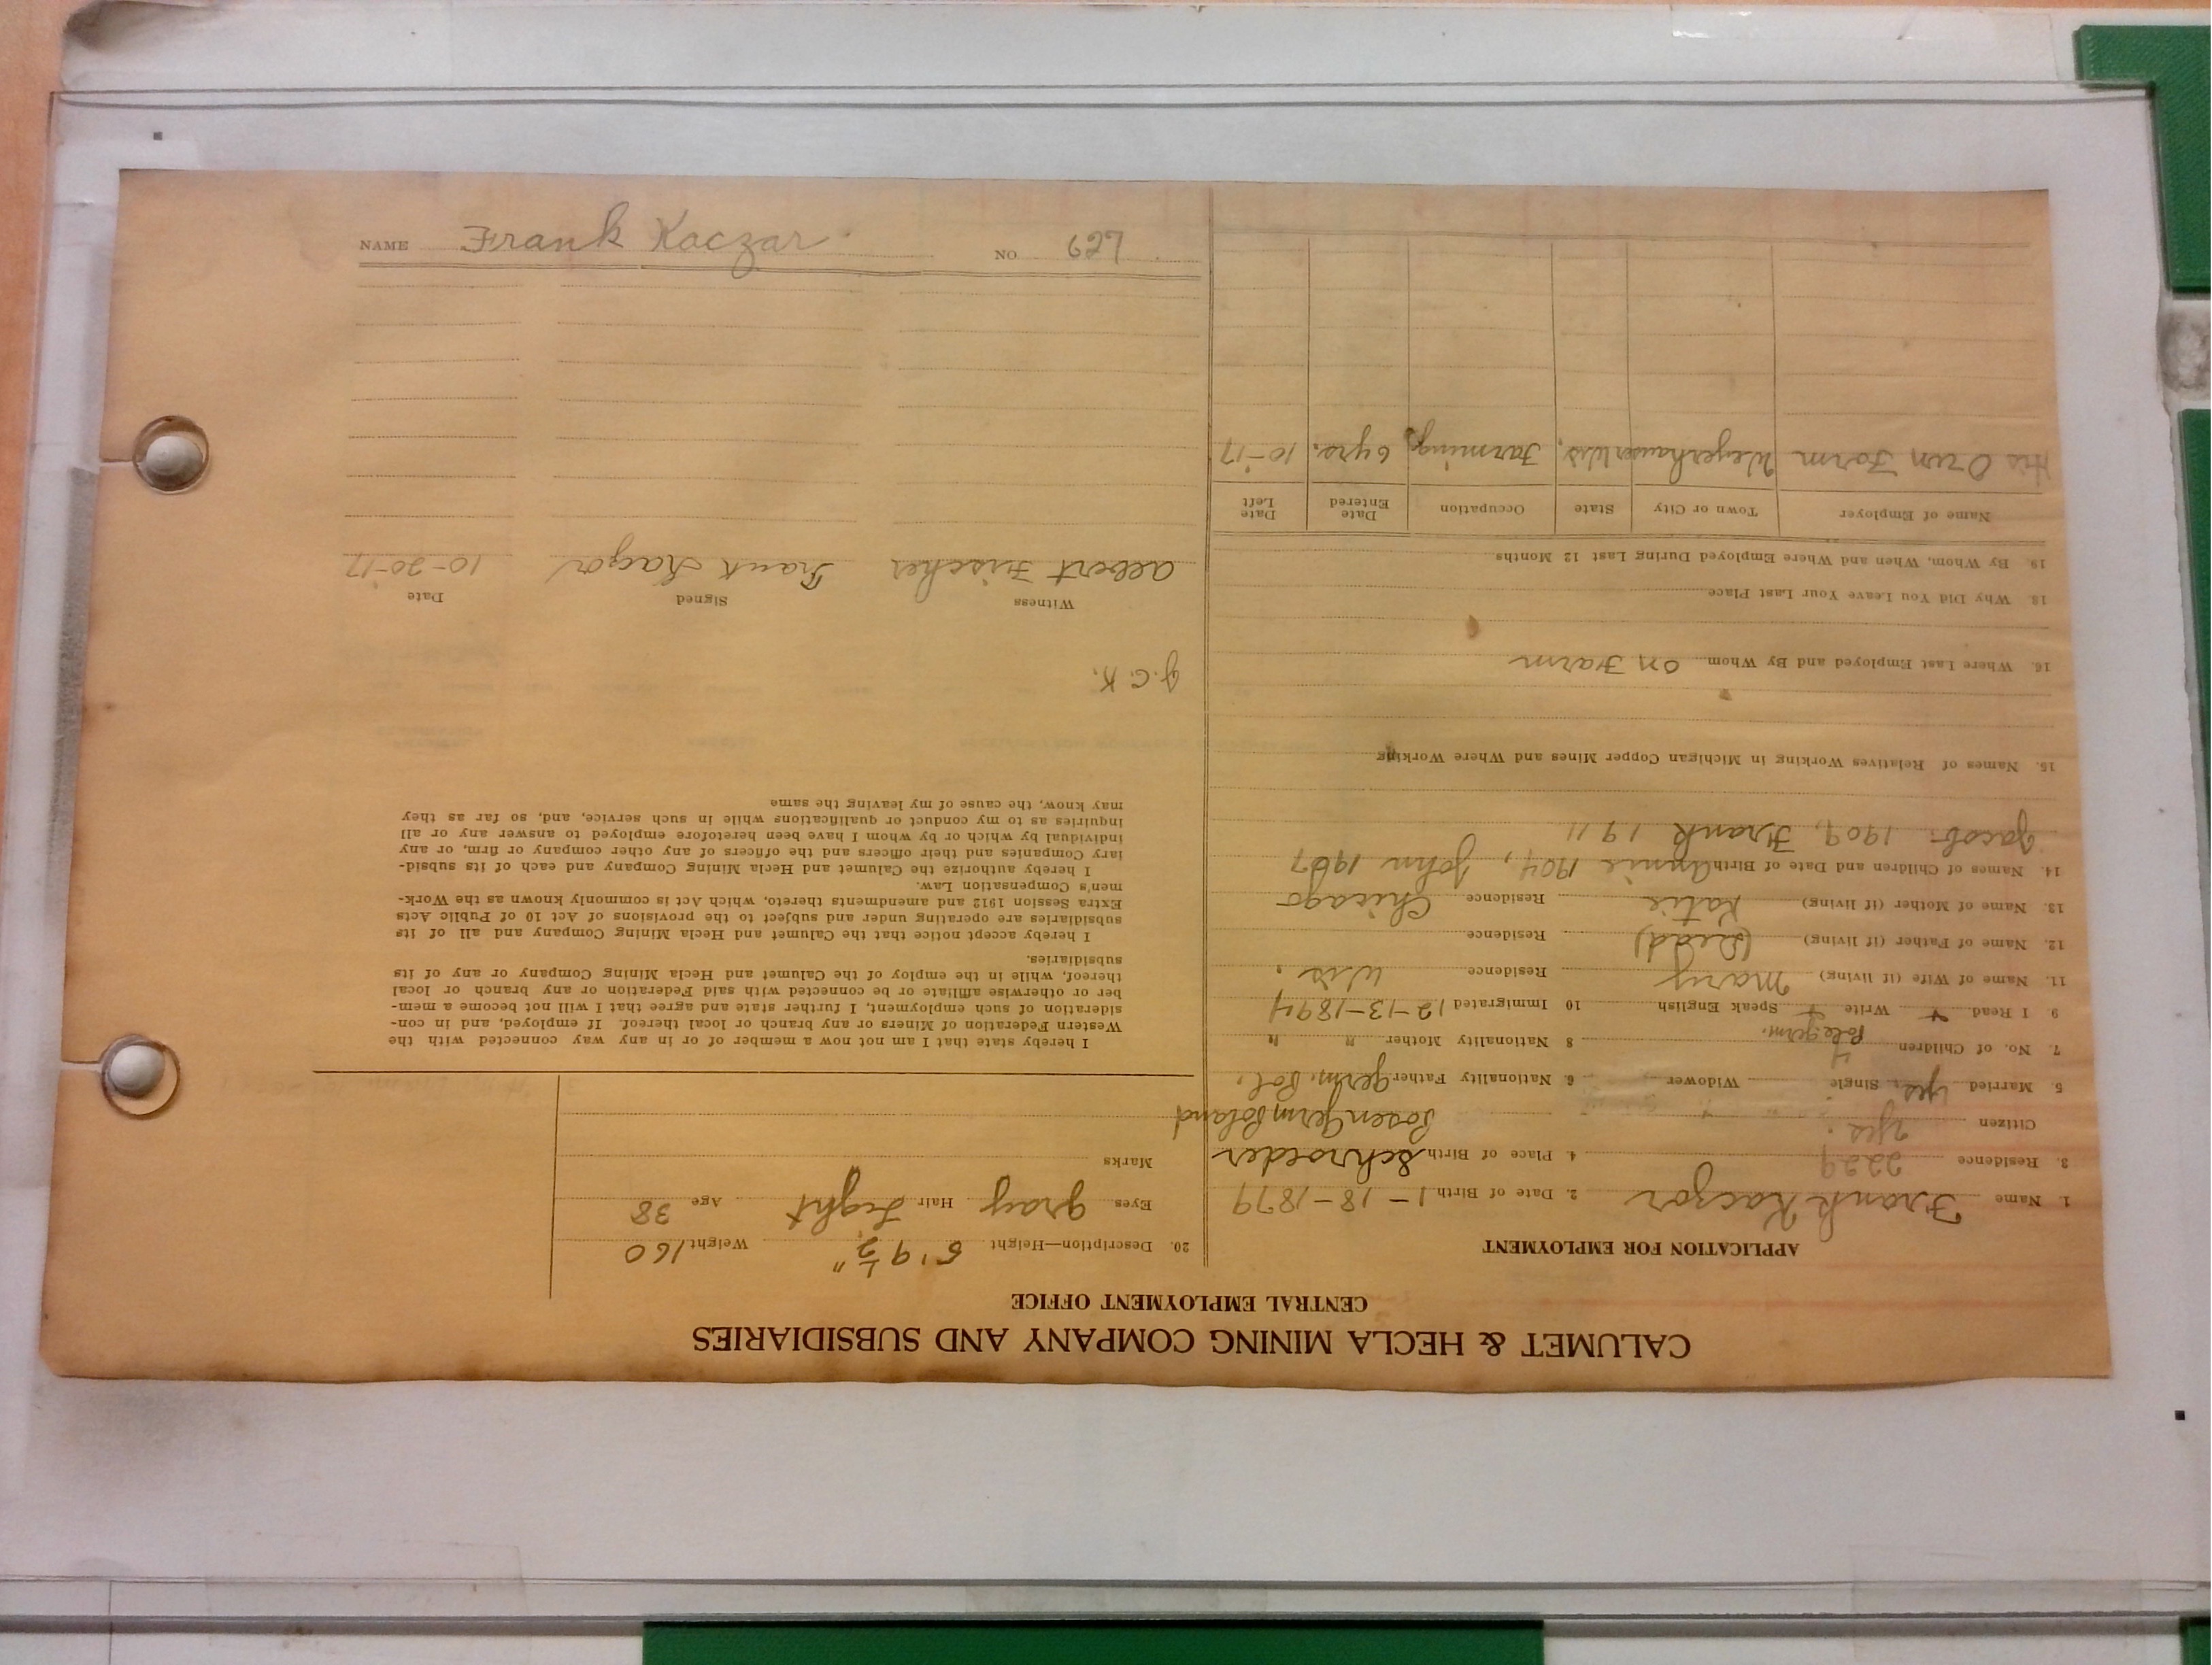 CALUMET & HECLA MINING COMPANY AND SUBSIDIARIES
CENTRAL EMPLOYMENT OFFICE
APPLICATION FOR EMPLOYMENT
1. Name Frank Kaczor 2. Date of Birth 1-18-1879
3. Residence 2229 4. Place of Birth Schroeder
Citizen Yes. Posen Germ Poland
5 Married yes Single Widower 6. Nationality Father Germ. Pol.
7. No. of Children 4 8 Nationality Mother " "
Pole Germ.
9. I Read + Write + Speak English 10 Immigrated 12-13-1894
11. Name of Wife (if living) Mary Residence Wis.
12. Name of Father (if living) (Dead) Residence
13. Name of Mother (if living) Katie Residence Chicago
14. Names of Children and Date of Birth Annie 1904, John 1907
Jacob. 1909, Frank 1911
15. Names of Relatives Working in Michigan Copper Mines and Where Working
16. Where Last Employed and By Whom On Farm
18. Why Did You Leave Your Last Place
19. By Whom, When and Where Employed During Last 12 Months
Name of Employer Town or City State Occupation Date Entered Date Left
His Own Farm Weyerhauser Wis. Farming 6 yrs. 10-17
20. Description—Height 5' 9 1/2" Weight 160
Eyes Gray Hair Light Age 38
Marks
I hereby state that I am not now a member of or in any way connected with the
Western Federation of Miners or any branch or local thereof. If employed, and in con-
sideration of such employment, I further state and agree that I will not become a mem-
ber or otherwise affiliate or be connected with said Federation or any branch or local
thereof, while in the employ of the Calumet and Hecla Mining Company or any of its
subsidiaries.
I hereby accept notice that the Calumet and Hecla Mining Company and all of its
subsidiaries are operating under and subject to the provisions of Act 10 of Public Acts
Extra Session 1912 and amendments thereto, which Act is commonly known as the Work-
men's Compensation Law.
I hereby authorize the Calumet and Hecla Mining Company and each of its subsid-
iary Companies and their officers and the officers of any other company or firm, or any
individual by which or by whom I have been heretofore employed to answer any or all
inquiries as to my conduct or qualifications while in such service, and, so far as they
may know, the cause of my leaving the same
J.C.K.
Witness Signed Date
Albert Fischer Frank Kaczor 10-20-17
NAME Frank Kaczar NO 627